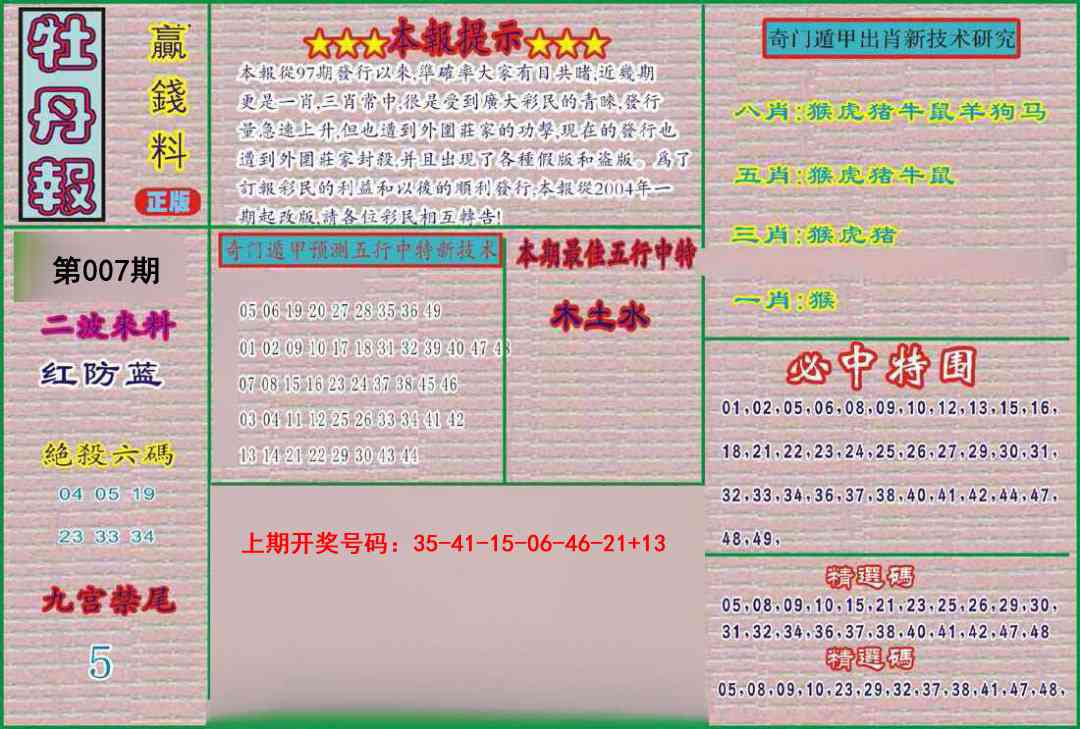 牡丹報
贏錢料
正版
★★★本報提示★★★
本報從97期發行以來,準確率大家有目共睹,近幾期
更是一肖,三肖常中,很是受到廣大彩民的青睞,發行
量急速上升,但也遭到外圍莊家的功擊,現在的發行也
遭到外圍莊家封殺,并且出現了各種假版和盗版。爲了
訂報彩民的利益和以後的順利發行,本報從2004年一
期起改版,請各位彩民相互轉告!
奇门遁甲出肖新技术研究
八肖:猴虎猪牛鼠羊狗马
五肖:猴虎猪牛鼠
三肖:猴虎猪
一肖:猴
第007期
二波来料
红防蓝
絕殺六碼
04 05 19
23 33 34
九宫禁尾
5
奇门遁甲预测五行中特新技术
05 06 19 20 27 28 35 36 49
01 02 09 10 17 18 31 32 39 40 47 48
07 08 15 16 23 24 37 38 45 46
03 04 11 12 25 26 33 34 41 42
13 14 21 22 29 30 43 44
本期最佳五行中特
木土水
上期开奖号码：35-41-15-06-46-21+13
必中特围
01,02,05,06,08,09,10,12,13,15,16,
18,21,22,23,24,25,26,27,29,30,31,
32,33,34,36,37,38,40,41,42,44,47,
48,49,
精選碼
05,08,09,10,15,21,23,25,26,29,30,
31,32,34,36,37,38,40,41,42,47,48
精選碼
05,08,09,10,23,29,32,37,38,41,47,48,